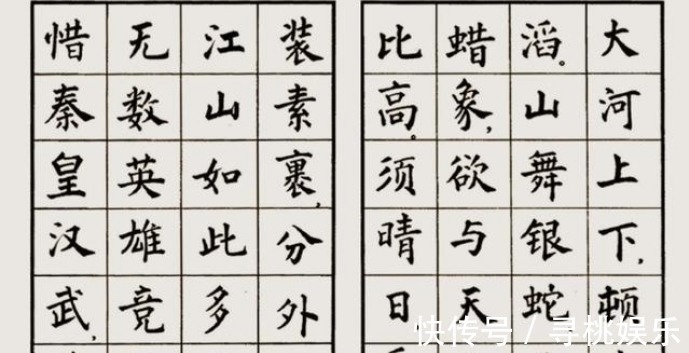 大河上下,顿
滔。山舞银蛇
蜡象,欲与天
比高。须晴日
装素裹,分外
江山如此多
无数英雄竞
惜秦皇汉武,
快传号 / 寻桃娱乐